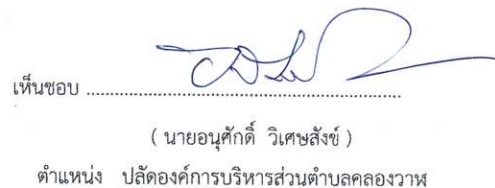 เห็นชอบ ............................................................
( นายอนุศักดิ์ วิเศษสังข์ )
ตำแหน่ง ปลัดองค์การบริหารส่วนตำบลคลองวาฬ